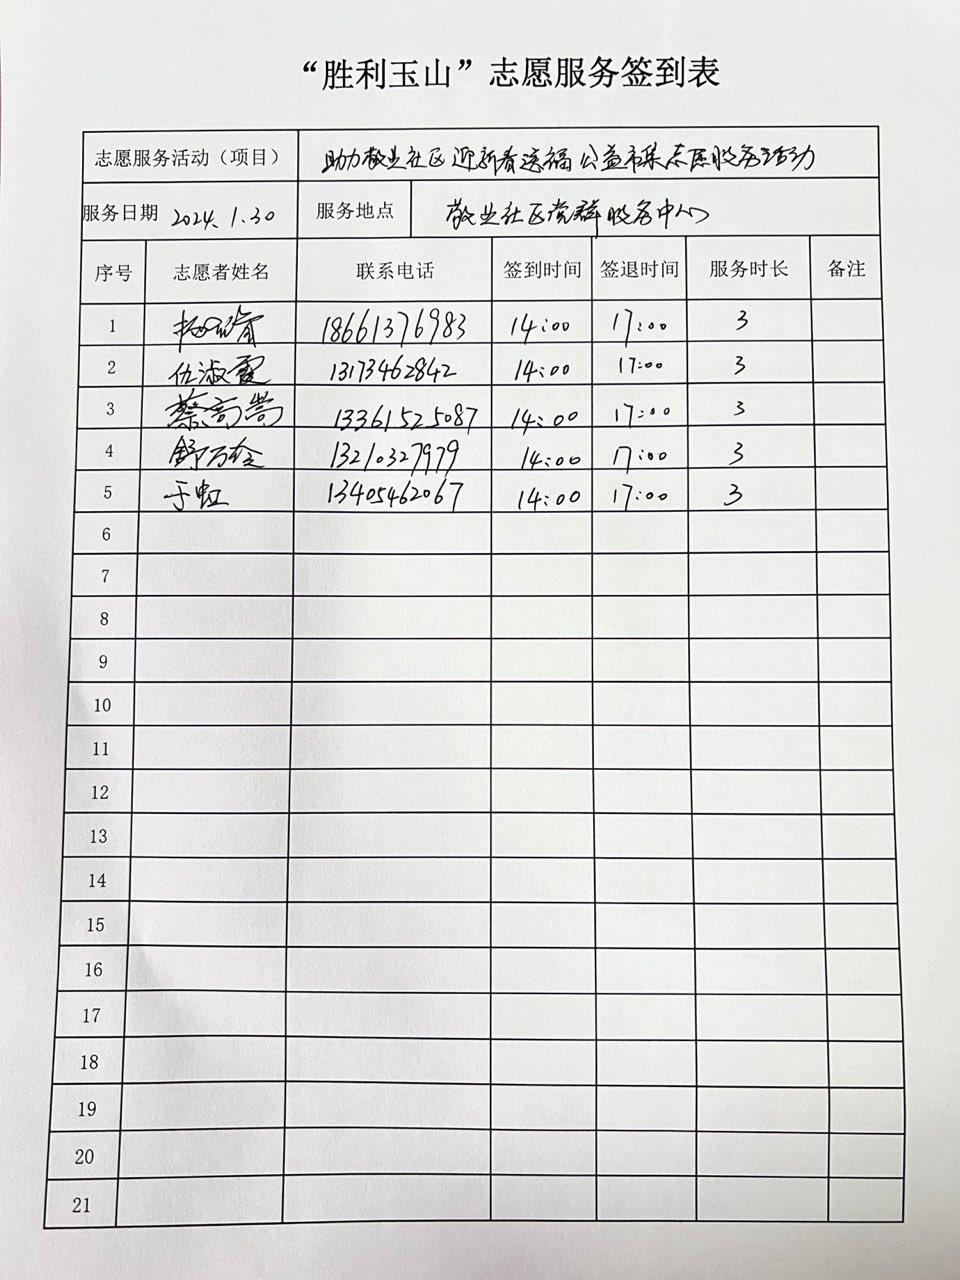 “胜利玉山”志愿服务签到表
志愿服务活动（项目） 助力敬业社区迎新春送福公益市集志愿服务活动
服务日期 2024.1.30 服务地点 敬业社区党群服务中心
序号 志愿者姓名 联系电话 签到时间 签退时间 服务时长 备注
1 18661376983 14:00 17:00 3
2 伍淑霞 13173462842 14:00 17:00 3
3 蔡高嵩 13361525087 14:00 17:00 3
4 舒万 13210327979 14:00 17:00 3
5 于虹 13405462067 14:00 17:00 3
6
7
8
9
10
11
12
13
14
15
16
17
18
19
20
21